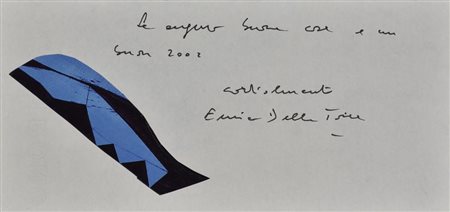 Le auguro buone cose e un
buon 2002
cordialmente
Enrico Della Torre